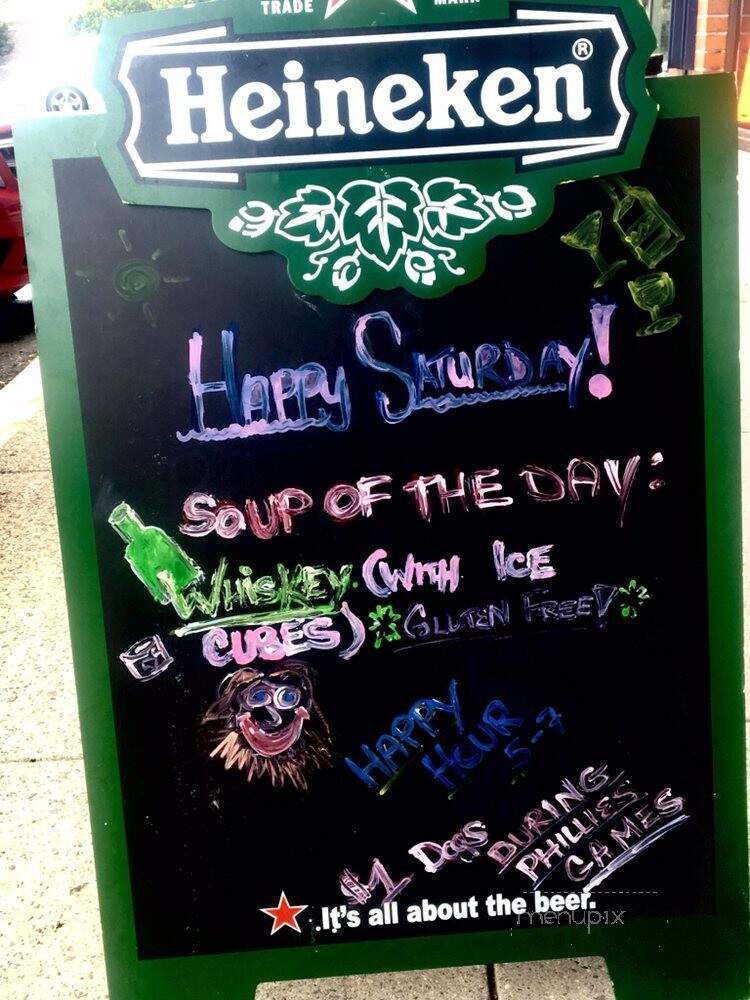 TRADE MARK
Heineken®
HAPPY SATURDAY!
SOUP OF THE DAY:
WHISKEY (WITH ICE
CUBES) GLUTEN FREE!
HAPPY
HOUR
5-7
$1 DOGS DURING
PHILLIES
GAMES
It's all about the beer.
menupix